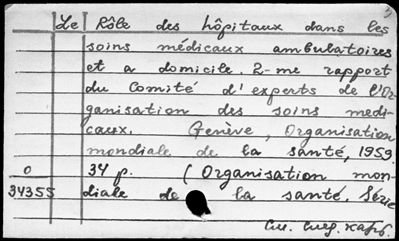 Le Rôle des hôpitaux dans les
soins médicaux ambulatoires
et a domicile. 2-me rapport
du Comité d'experts de l'Or-
ganisation des soins medi-
caux. Genève, Organisation
mondiale de la santé, 1959.
0 34 p. (Organisation mon-
34355 diale de la santé. Série
См. след. карт.